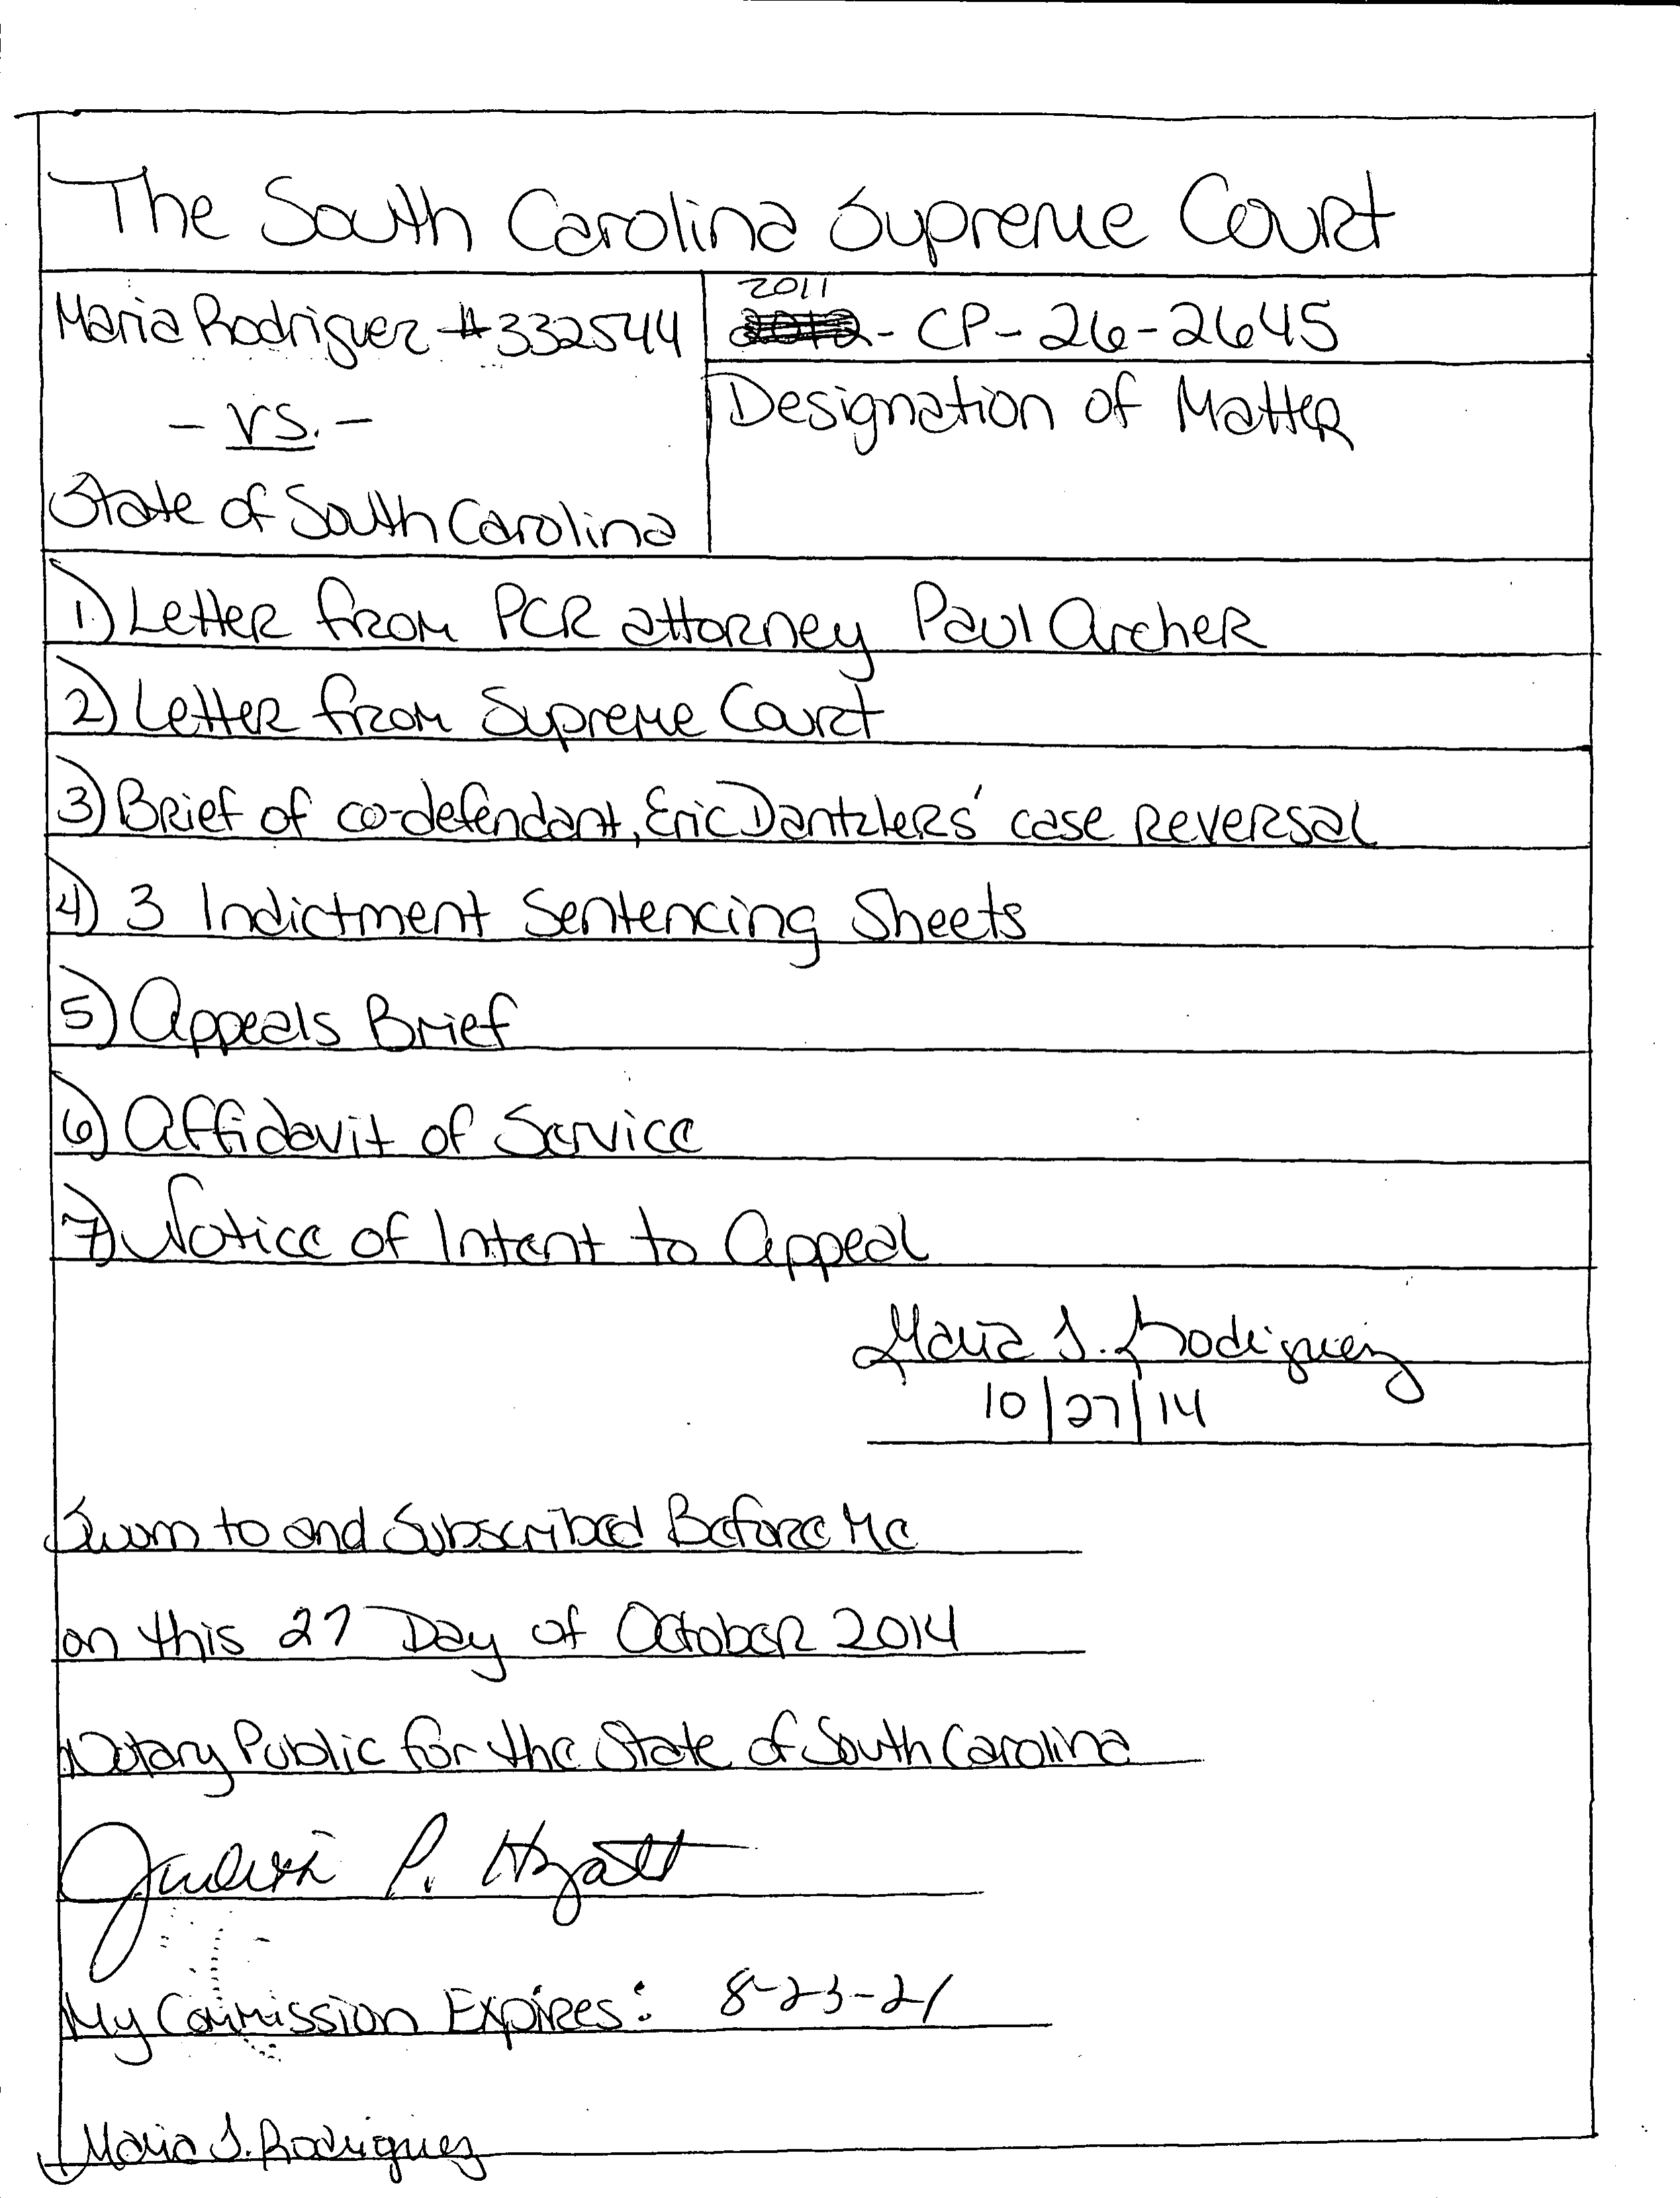 The South Carolina Supreme Court
Maria Rodriguez #332544
2011
- CP-26-2645
- vs. -
Designation of Matter
State of South Carolina
1) Letter from PCR attorney Paul Archer
2) Letter from Supreme Court
3) Brief of co-defendant, Eric Dantzlers' case reversal
4) 3 Indictment Sentencing Sheets
5) Appeals Brief
6) Affidavit of Service
7) Notice of Intent to Appeal
Maria S. Rodriguez
10/27/14
Sworn to and Subscribed Before Me
on this 27 Day of October 2014
Notary Public for the State of South Carolina
Judith P. Hyatt
My Commission Expires: 8-23-21
Maria S. Rodriguez